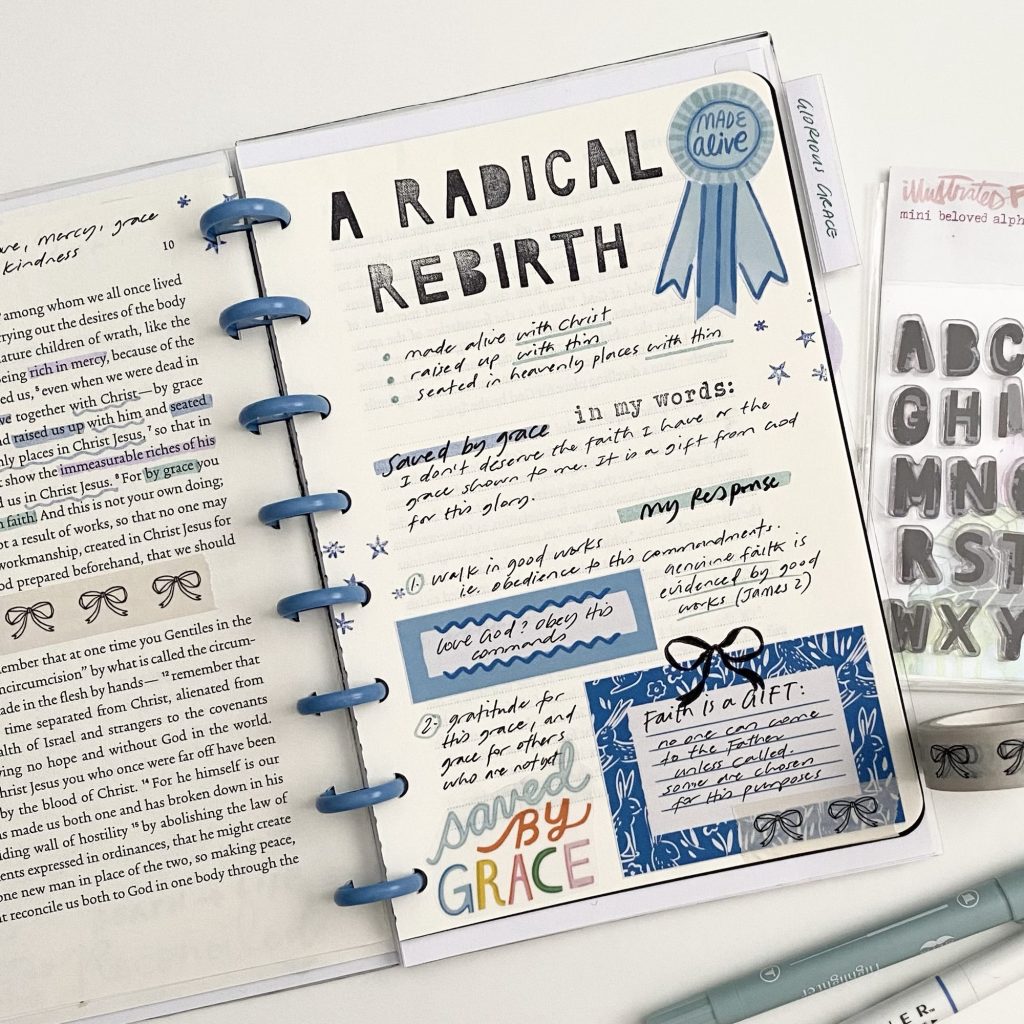 mercy, grace
kindness
10
among whom we all once lived
rying out the desires of the body
ature children of wrath, like the
eing rich in mercy, because of the
ed us, ⁵ even when we were dead in
together with Christ—by grace
nd raised us up with him and seated
nly places in Christ Jesus, ⁷ so that in
t show the immeasurable riches of his
d us in Christ Jesus. ⁸ For by grace you
faith. And this is not your own doing;
ot a result of works, so that no one may
workmanship, created in Christ Jesus for
od prepared beforehand, that we should
member that at one time you Gentiles in the
ncircumcision” by what is called the circum-
ade in the flesh by hands— ¹² remember that
time separated from Christ, alienated from
alth of Israel and strangers to the covenants
ving no hope and without God in the world.
hrist Jesus you who once were far off have been
by the blood of Christ. ¹⁴ For he himself is our
as made us both one and has broken down in his
iding wall of hostility ¹⁵ by abolishing the law of
ents expressed in ordinances, that he might create
one new man in place of the two, so making peace,
t reconcile us both to God in one body through the
A RADICAL
REBIRTH
MADE
alive
GLORIOUS GRACE
made alive with Christ
raised up with Him
seated in heavenly places with Him
in my words:
Saved by grace
I don't deserve the faith I have or the
grace shown to me. It is a gift from God
for His glory.
my Response
1. walk in good works
ie. obedience to His commandments.
genuine faith is
evidenced by good
works (James 2)
love God? Obey His
commands
2. gratitude for
this grace, and
grace for others
who are not yet
saved
BY
GRACE
Faith is a GIFT:
no one can come
to the Father
unless called.
some are chosen
for His purposes
illustrated F
mini beloved alph
A B C
G H I
M N O
R S T
W X Y
Highlighter
LER